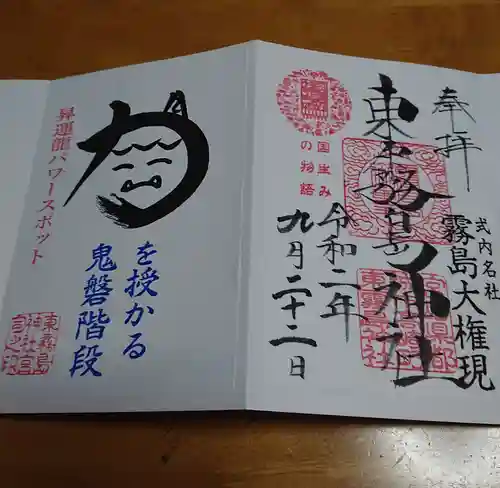 奉拝
式内名社
霧島大権現
東霧島神社
国生み
の物語
令和二年
九月二十二日
力
を授かる
鬼磐階段
昇運龍パワースポット